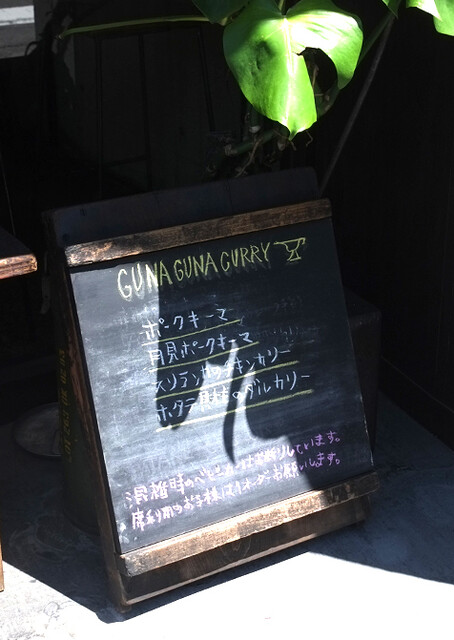 GUNA GUNA CURRY
ポークキーマ
月見ポークキーマ
スリランカチキンカリー
ホタテ貝柱のダルカリー
混雑時のベビーカーはお断りしています。
席利用のお子様は1オーダーお願いします。